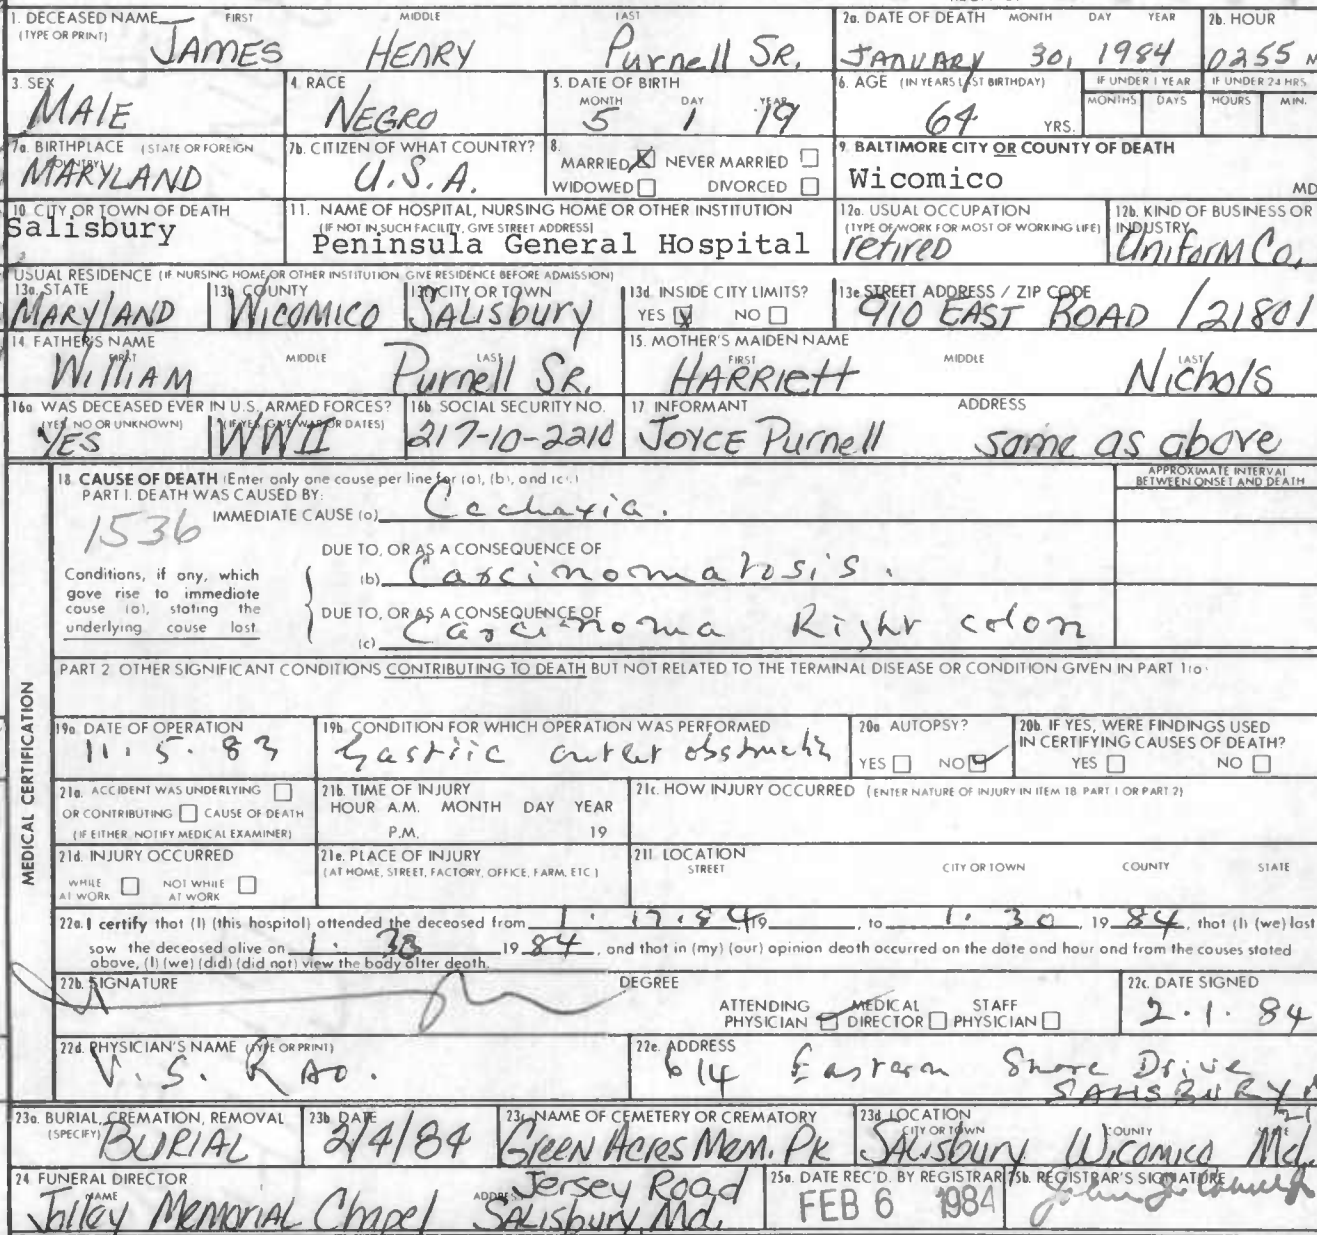 1. DECEASED NAME FIRST MIDDLE LAST
(TYPE OR PRINT)
JAMES HENRY Purnell SR.
2a. DATE OF DEATH MONTH DAY YEAR
JANUARY 30, 1984
2b. HOUR
0255 M
3. SEX
MALE
4. RACE
NEGRO
5. DATE OF BIRTH
MONTH DAY YEAR
5 1 19
6. AGE (IN YEARS LAST BIRTHDAY)
64 YRS.
IF UNDER 1 YEAR
MONTHS DAYS
IF UNDER 24 HRS.
HOURS MIN.
7a. BIRTHPLACE (STATE OR FOREIGN
COUNTRY)
MARYLAND
7b. CITIZEN OF WHAT COUNTRY?
U.S.A.
8.
MARRIED X NEVER MARRIED
WIDOWED DIVORCED
9. BALTIMORE CITY OR COUNTY OF DEATH
Wicomico
MD
10. CITY OR TOWN OF DEATH
Salisbury
11. NAME OF HOSPITAL, NURSING HOME OR OTHER INSTITUTION
(IF NOT IN SUCH FACILITY, GIVE STREET ADDRESS)
Peninsula General Hospital
12a. USUAL OCCUPATION
(TYPE OF WORK FOR MOST OF WORKING LIFE)
retired
12b. KIND OF BUSINESS OR
INDUSTRY
Uniform Co.
USUAL RESIDENCE (IF NURSING HOME OR OTHER INSTITUTION GIVE RESIDENCE BEFORE ADMISSION)
13a. STATE
MARYLAND
13b. COUNTY
WICOMICO
13c. CITY OR TOWN
SALISbury
13d. INSIDE CITY LIMITS?
YES X NO
13e STREET ADDRESS / ZIP CODE
910 EAST ROAD /21801
14. FATHER'S NAME
FIRST MIDDLE LAST
WilliAM Purnell SR.
15. MOTHER'S MAIDEN NAME
FIRST MIDDLE LAST
HARRIETT Nichols
16a WAS DECEASED EVER IN U.S. ARMED FORCES?
(YES, NO OR UNKNOWN) (IF YES, GIVE WAR OR DATES)
YES WWII
16b SOCIAL SECURITY NO.
217-10-2210
17 INFORMANT ADDRESS
JOYCE Purnell same as above
18. CAUSE OF DEATH (Enter only one cause per line for (a), (b), and (c).)
APPROXIMATE INTERVAL
BETWEEN ONSET AND DEATH
PART I. DEATH WAS CAUSED BY:
IMMEDIATE CAUSE (a) Cachexia.
1536
DUE TO, OR AS A CONSEQUENCE OF
(b) Carcinomatosis.
Conditions, if any, which
gave rise to immediate
cause (a), stating the
underlying cause last
DUE TO, OR AS A CONSEQUENCE OF
(c) Carcinoma Right colon
PART 2 OTHER SIGNIFICANT CONDITIONS CONTRIBUTING TO DEATH BUT NOT RELATED TO THE TERMINAL DISEASE OR CONDITION GIVEN IN PART 1(a)
MEDICAL CERTIFICATION
19a DATE OF OPERATION
11.5.83
19b CONDITION FOR WHICH OPERATION WAS PERFORMED
Gastric outlet obstructn
20a AUTOPSY?
YES NO
20b. IF YES, WERE FINDINGS USED
IN CERTIFYING CAUSES OF DEATH?
YES NO
21a. ACCIDENT WAS UNDERLYING
OR CONTRIBUTING CAUSE OF DEATH
(IF EITHER NOTIFY MEDICAL EXAMINER)
21b. TIME OF INJURY
HOUR A.M. MONTH DAY YEAR
P.M. 19
21c. HOW INJURY OCCURRED (ENTER NATURE OF INJURY IN ITEM 18 PART 1 OR PART 2)
21d. INJURY OCCURRED
WHILE AT WORK NOT WHILE AT WORK
21e. PLACE OF INJURY
(AT HOME, STREET, FACTORY, OFFICE, FARM, ETC.)
21f. LOCATION
STREET CITY OR TOWN COUNTY STATE
22a. I certify that (I) (this hospital) attended the deceased from 1.17.84 19 , to 1.30, 19 84, that (I) (we) last
saw the deceased alive on 1. 30 19 84, and that in (my) (our) opinion death occurred on the date and hour and from the causes stated
above, (I) (we) (did) (did not) view the body after death.
22b. SIGNATURE
DEGREE
ATTENDING PHYSICIAN MEDICAL DIRECTOR STAFF PHYSICIAN
22c. DATE SIGNED
2.1.84
22d. PHYSICIAN'S NAME (TYPE OR PRINT)
V. S. RAO.
22e. ADDRESS
614 Eastern Shore Drive
SALISBURY
23a. BURIAL, CREMATION, REMOVAL
(SPECIFY)
BURIAL
23b DATE
2/4/84
23c NAME OF CEMETERY OR CREMATORY
Green Acres Mem. Pk
23d LOCATION
CITY OR TOWN COUNTY
SALisbury Wicomico Md.
24 FUNERAL DIRECTOR
NAME
Jolley Memorial Chapel
ADDRESS
Jersey Road
SALisbury, Md.
25a. DATE REC'D. BY REGISTRAR
FEB 6 1984
25b. REGISTRAR'S SIGNATURE